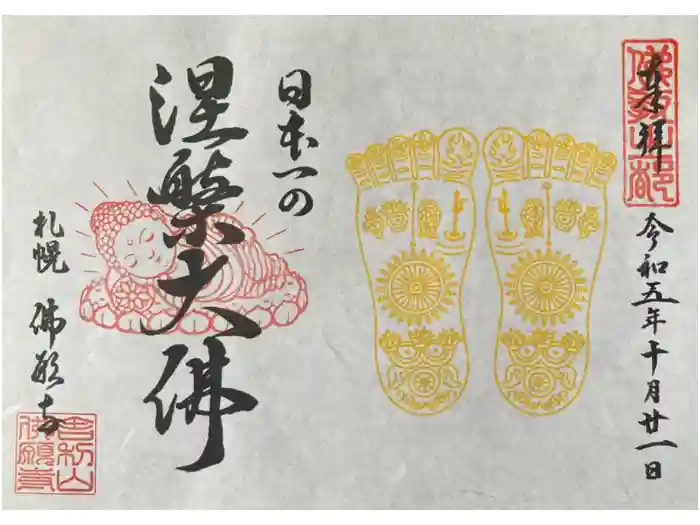 奉拝
令和五年十月廿一日
日本一の
涅槃大佛
札幌 佛願寺
舎利山
佛願寺